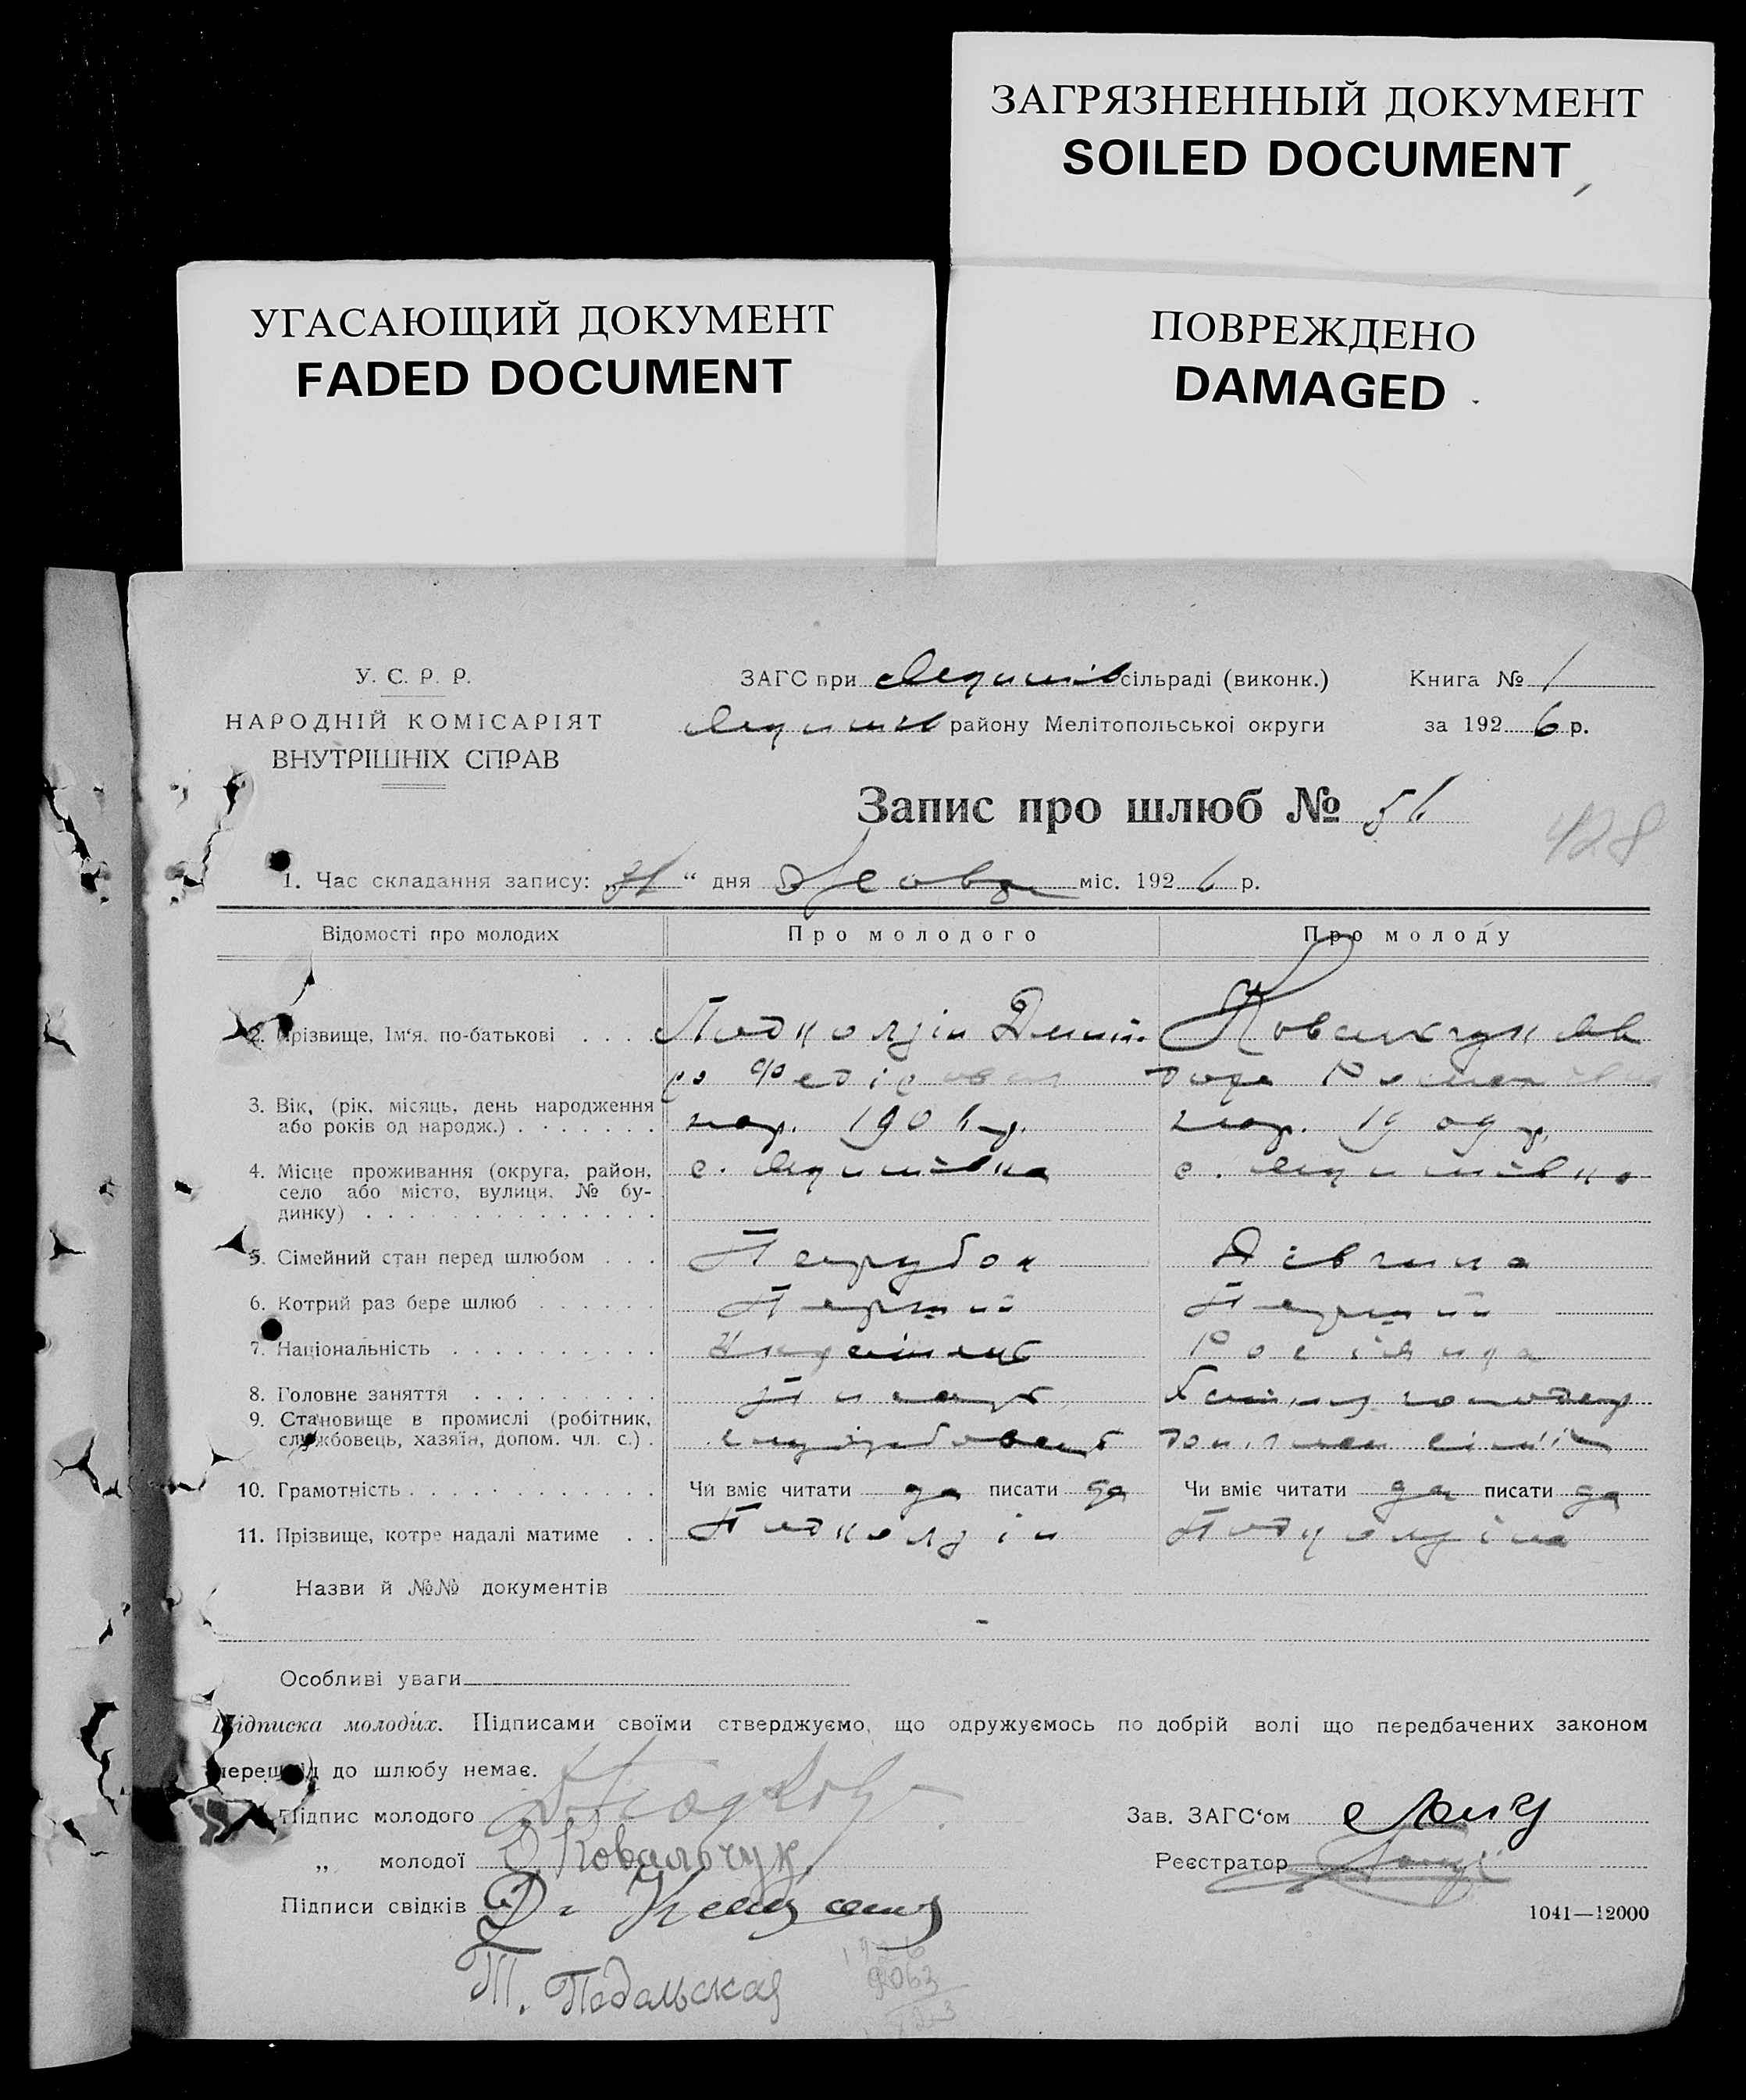 ЗАГРЯЗНЕННЫЙ ДОКУМЕНТ
SOILED DOCUMENT
УГАСАЮЩИЙ ДОКУМЕНТ
FADED DOCUMENT
ПОВРЕЖДЕНО
DAMAGED
У. С. Р. Р.
НАРОДНІЙ КОМІСАРІЯТ
ВНУТРІШНІХ СПРАВ
ЗАГС при сільраді (виконк.)
району Мелітопольської округи
Книга № 1
за 1926 р.
Запис про шлюб № 51
428
1. Час складання запису: „ “ дня міс. 1926 р.
Відомості про молодих Про молодого Про молоду
2. Прізвище, Ім‘я, по-батькові Подколзін Дмит- Ковальчук
ро Федіров Роман
3. Вік, (рік, місяць, день народження
або років од народж.) нар. 190 р. нар. 1909 р.
4. Місце проживання (округа, район,
село або місто, вулиця, № бу-
динку) с. с.
5. Сімейний стан перед шлюбом Парубок Дівчина
6. Котрий раз бере шлюб Перший Перший
7. Національність Українець Росіянка
8. Головне заняття Писарь
9. Становище в промислі (робітник,
службовець, хазяїн, допом. чл. с.) службовець доп. член сім'ї
10. Грамотність Чи вміє читати да писати да Чи вміє читати да писати да
11. Прізвище, котре надалі матиме Подколзін Подколзіна
Назви й №№ документів
Особливі уваги
Підписка молодих. Підписами своїми стверджуємо, що одружуємось по добрій волі що передбачених законом
перешкід до шлюбу немає.
Підпис молодого
„ молодої Ковальчук
Підписи свідків
Т. Подольская
Зав. ЗАГС‘ом
Реєстратор
1041—12000
1926